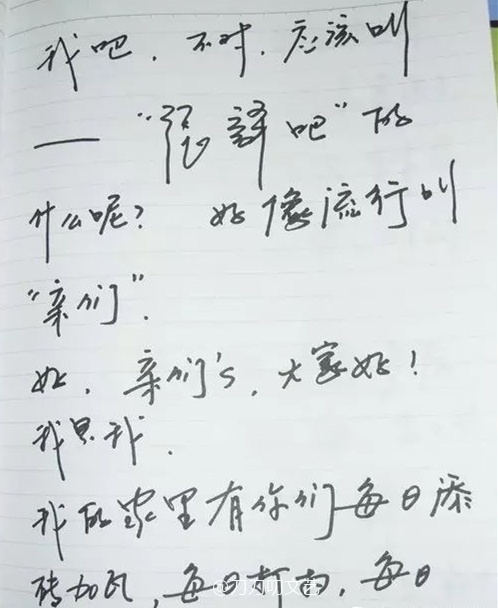 我吧,不对,应该叫
——“张譯吧”的
什么呢? 好像流行叫
“亲们”.
好,亲们's,大家好!
我是我.
我的家里有你们每日添
砖加瓦,每日打扫,每日
@刀刃叨文艺